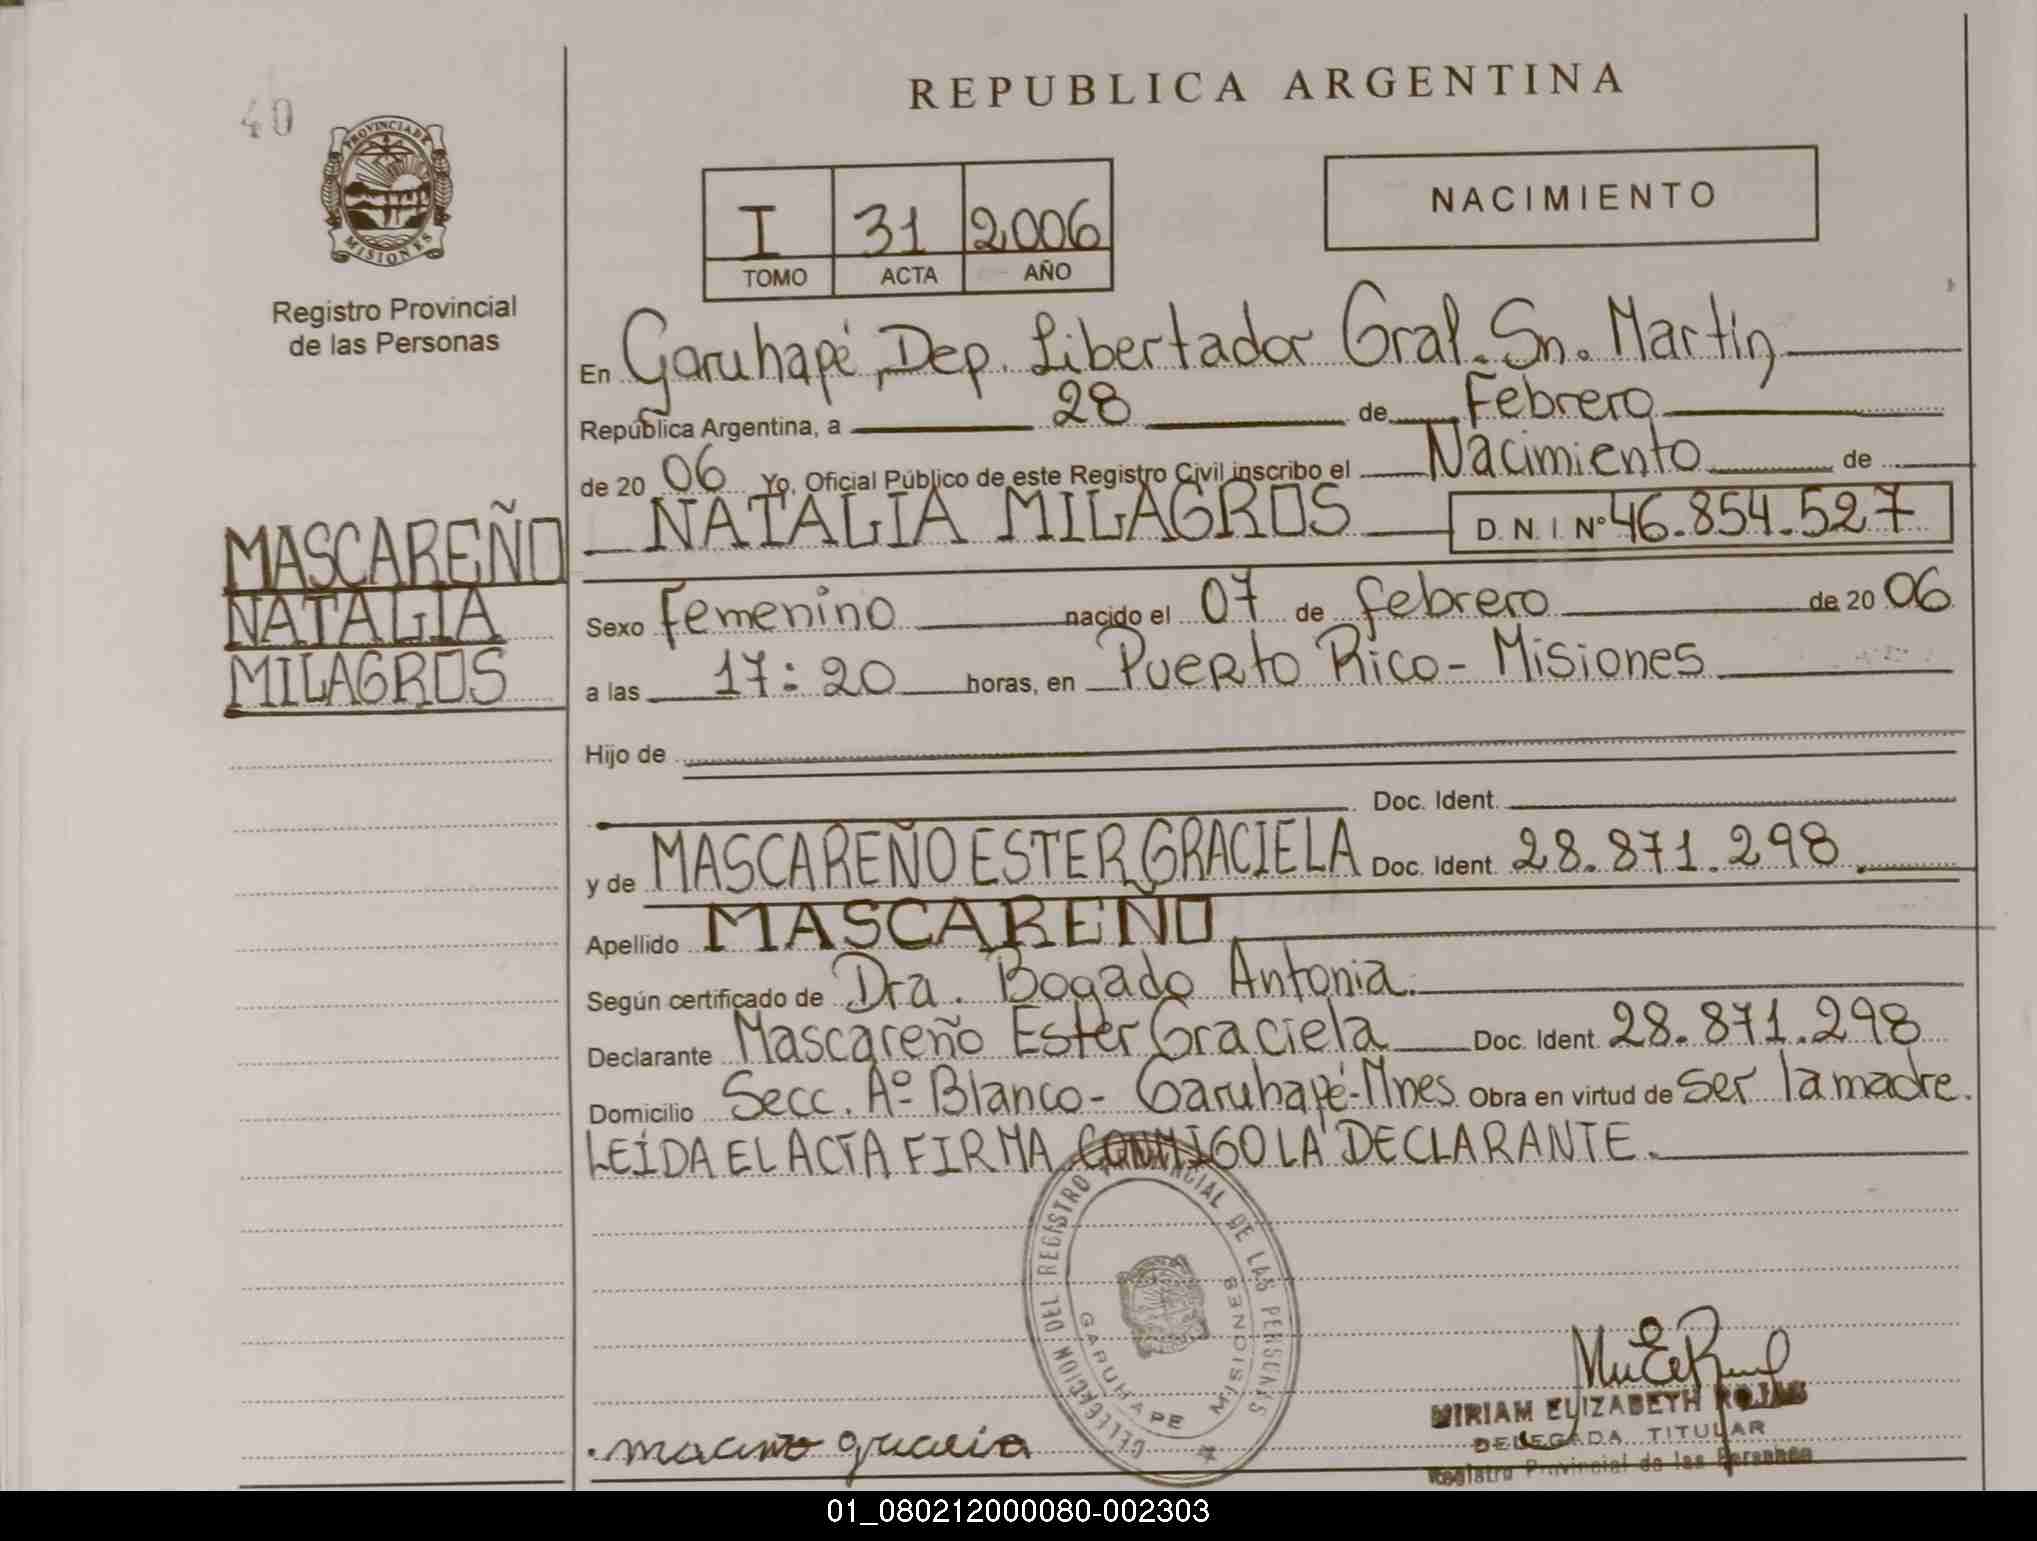 REPUBLICA ARGENTINA
40
PROVINCIA DE
MISIONES
Registro Provincial
de las Personas
NACIMIENTO
I 31 2006
TOMO ACTA AÑO
En Garuhapé, Dep. Libertador Gral. Sn. Martín
República Argentina, a 28 de Febrero
de 20 06 Yo, Oficial Público de este Registro Civil inscribo el Nacimiento de
NATALIA MILAGROS D.N.I. Nº 46.854.527
MASCAREÑO
NATALIA
MILAGROS
Sexo Femenino nacido el 07 de febrero de 20 06
a las 17:20 horas, en Puerto Rico - Misiones
Hijo de
Doc. Ident.
y de MASCAREÑO ESTER GRACIELA Doc. Ident. 28.871.298
Apellido MASCAREÑO
Según certificado de Dra. Bogado Antonia.
Declarante Mascareño Ester Graciela Doc. Ident. 28.871.298
Domicilio Secc. Aº Blanco - Garuhapé - Mnes Obra en virtud de ser la madre.
LEÍDA EL ACTA FIRMA CONMIGO LA DECLARANTE.
DELEGACION DEL REGISTRO PROVINCIAL DE LAS PERSONAS
GARUHAPE MISIONES
MIRIAM ELIZABETH ROJAS
DELEGADA TITULAR
Registro Provincial de las Personas
01_080212000080-002303